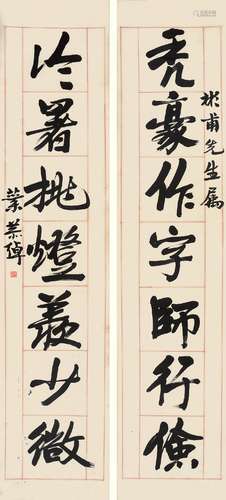 秃豪作字師行儉
甫先生屬
冷署挑燈羨少微
葉恭綽